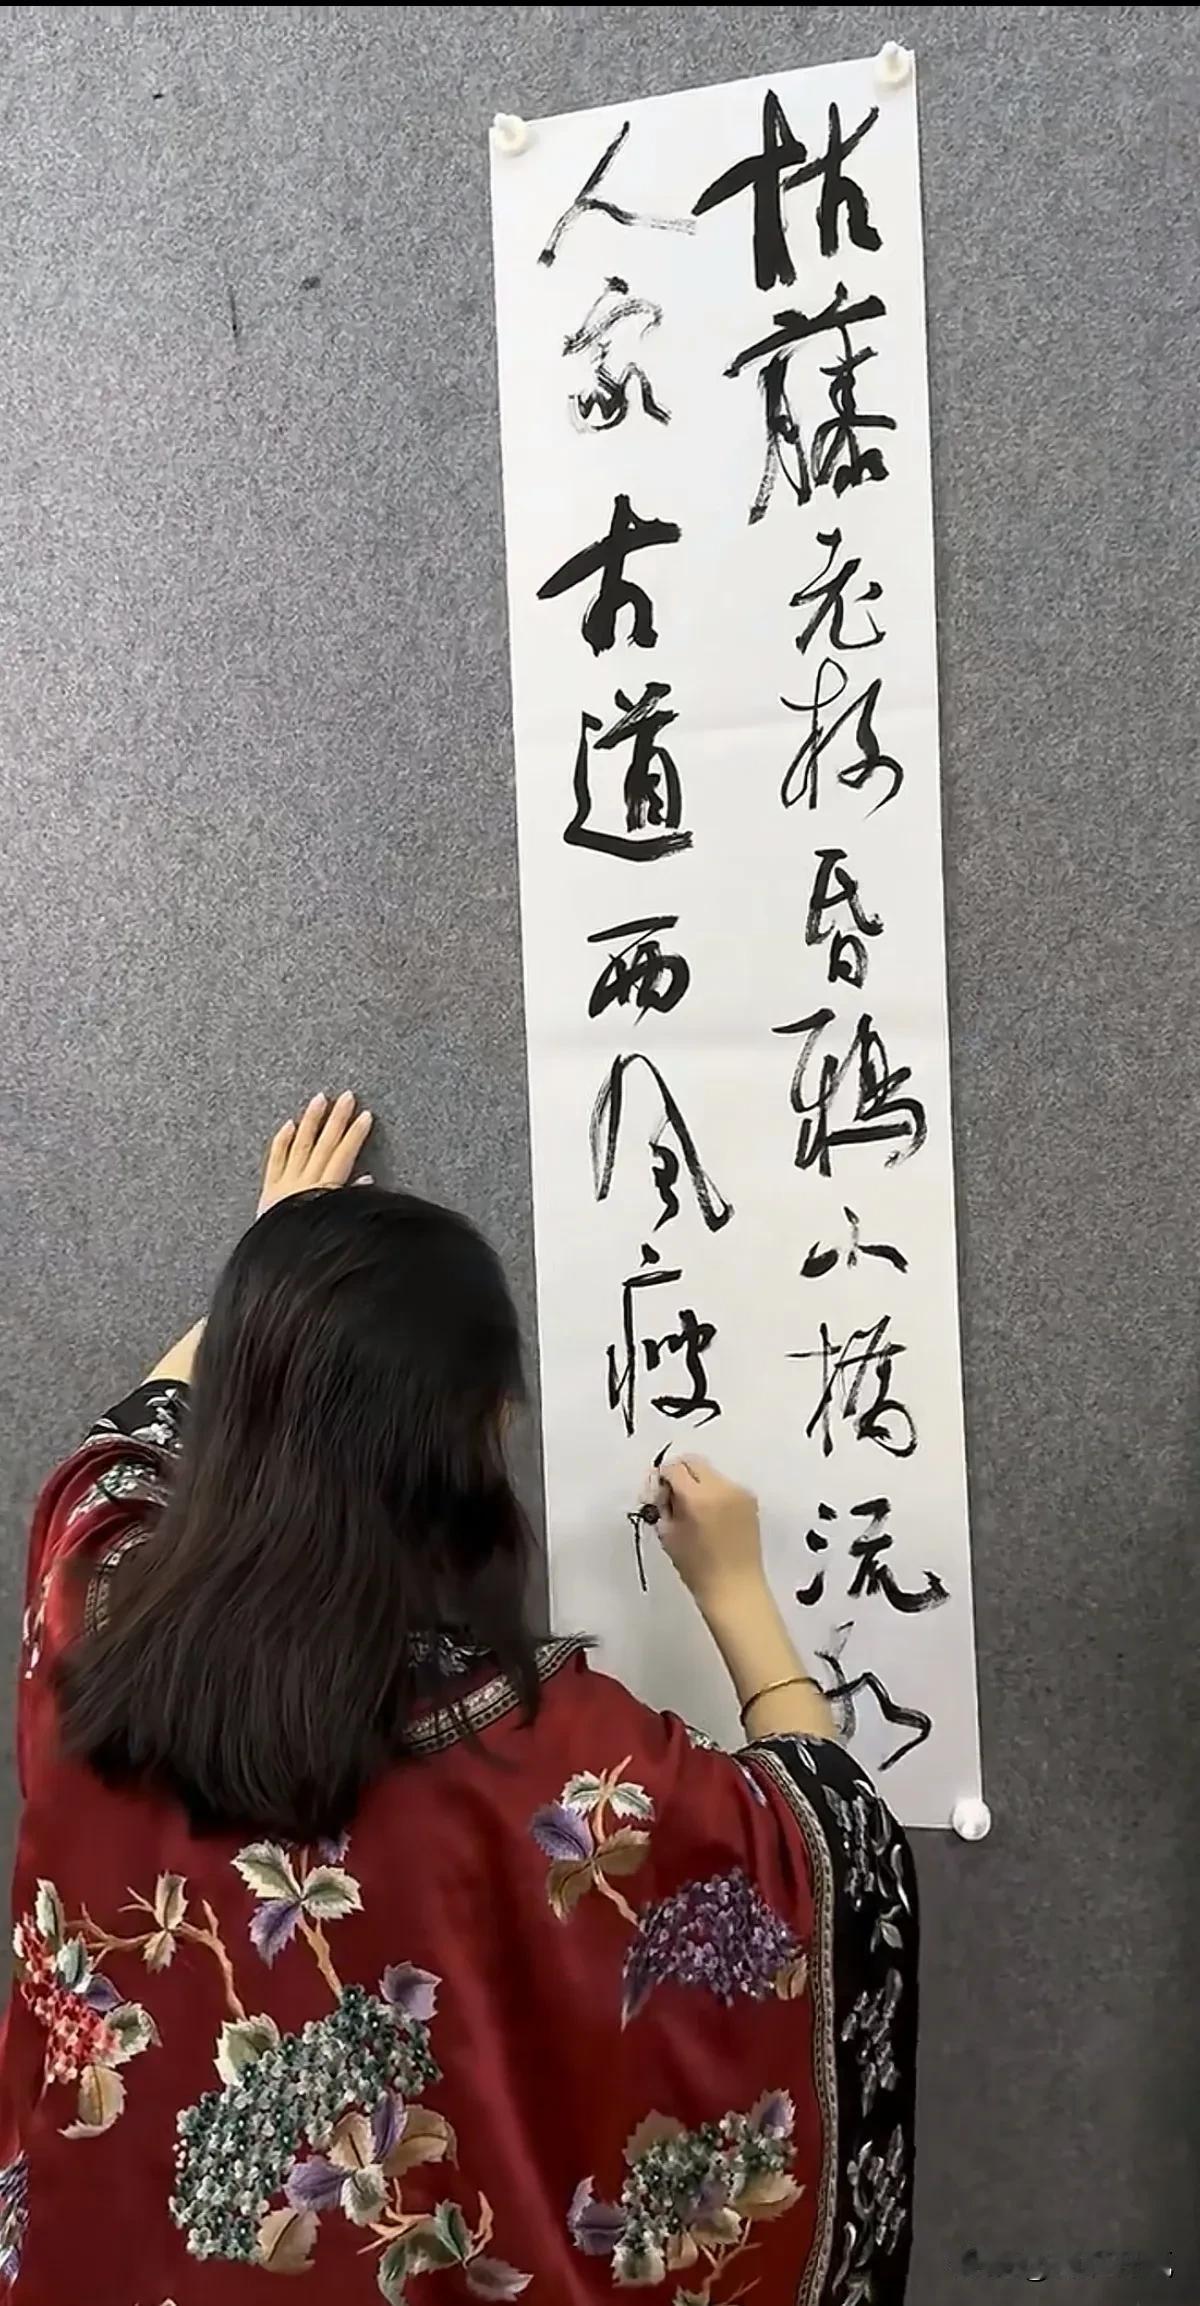 枯藤老树昏鸦小桥流水
人家古道西风瘦